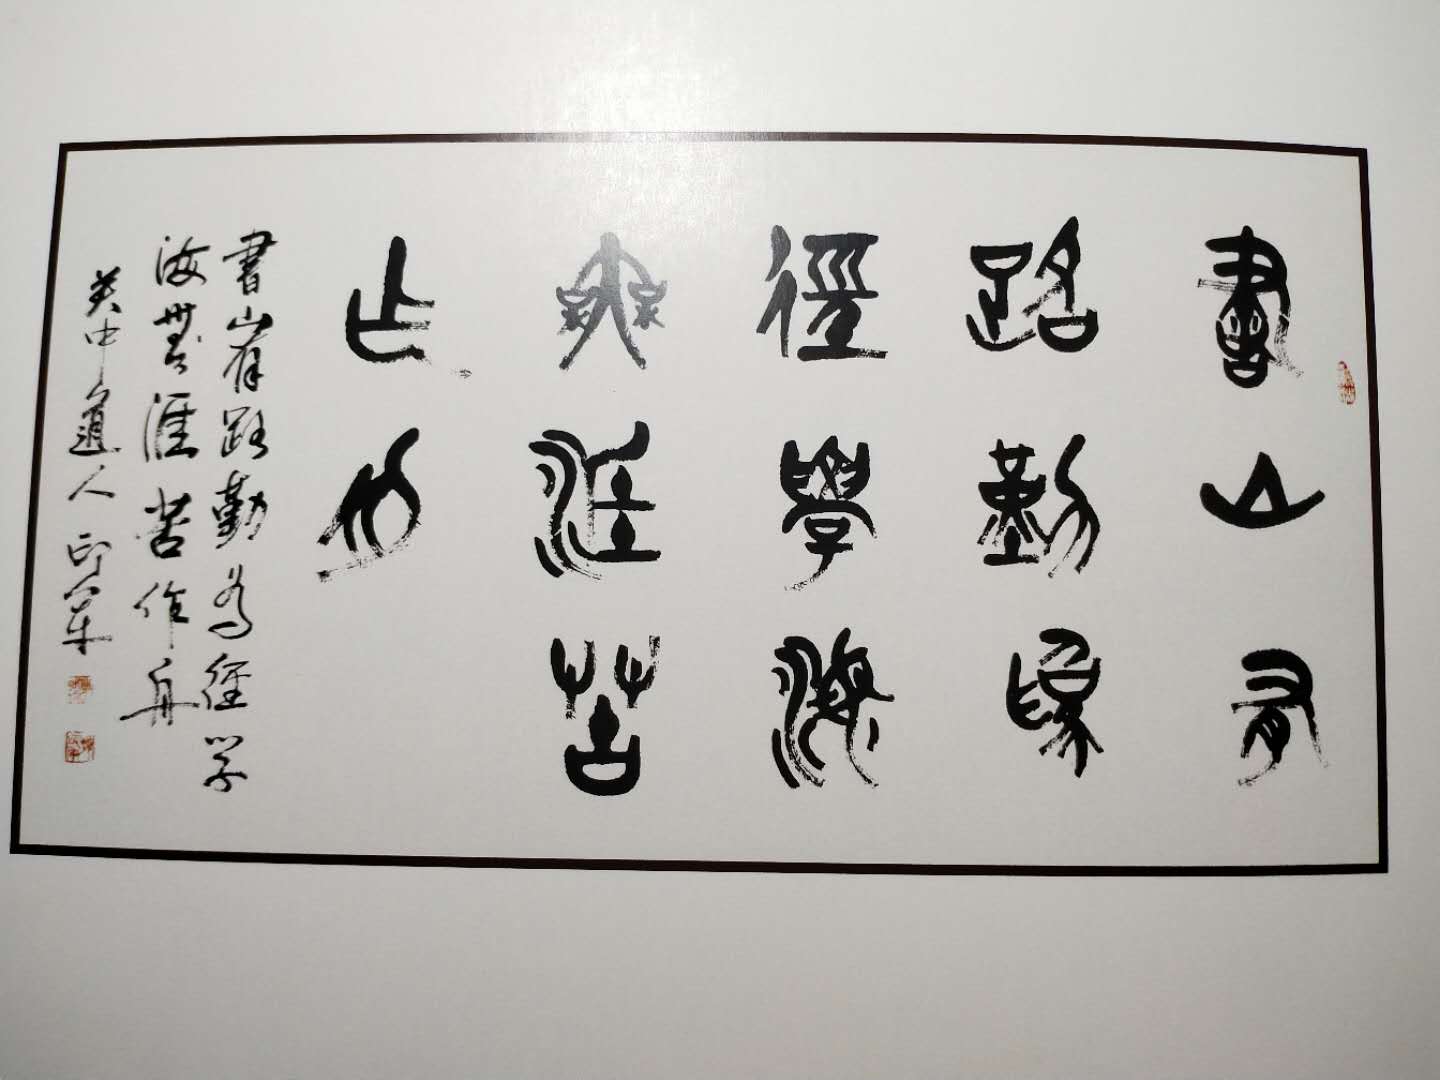 書山有
路勤為
徑學海
無涯苦
作舟
書山有路勤為徑學
海無涯苦作舟
道人